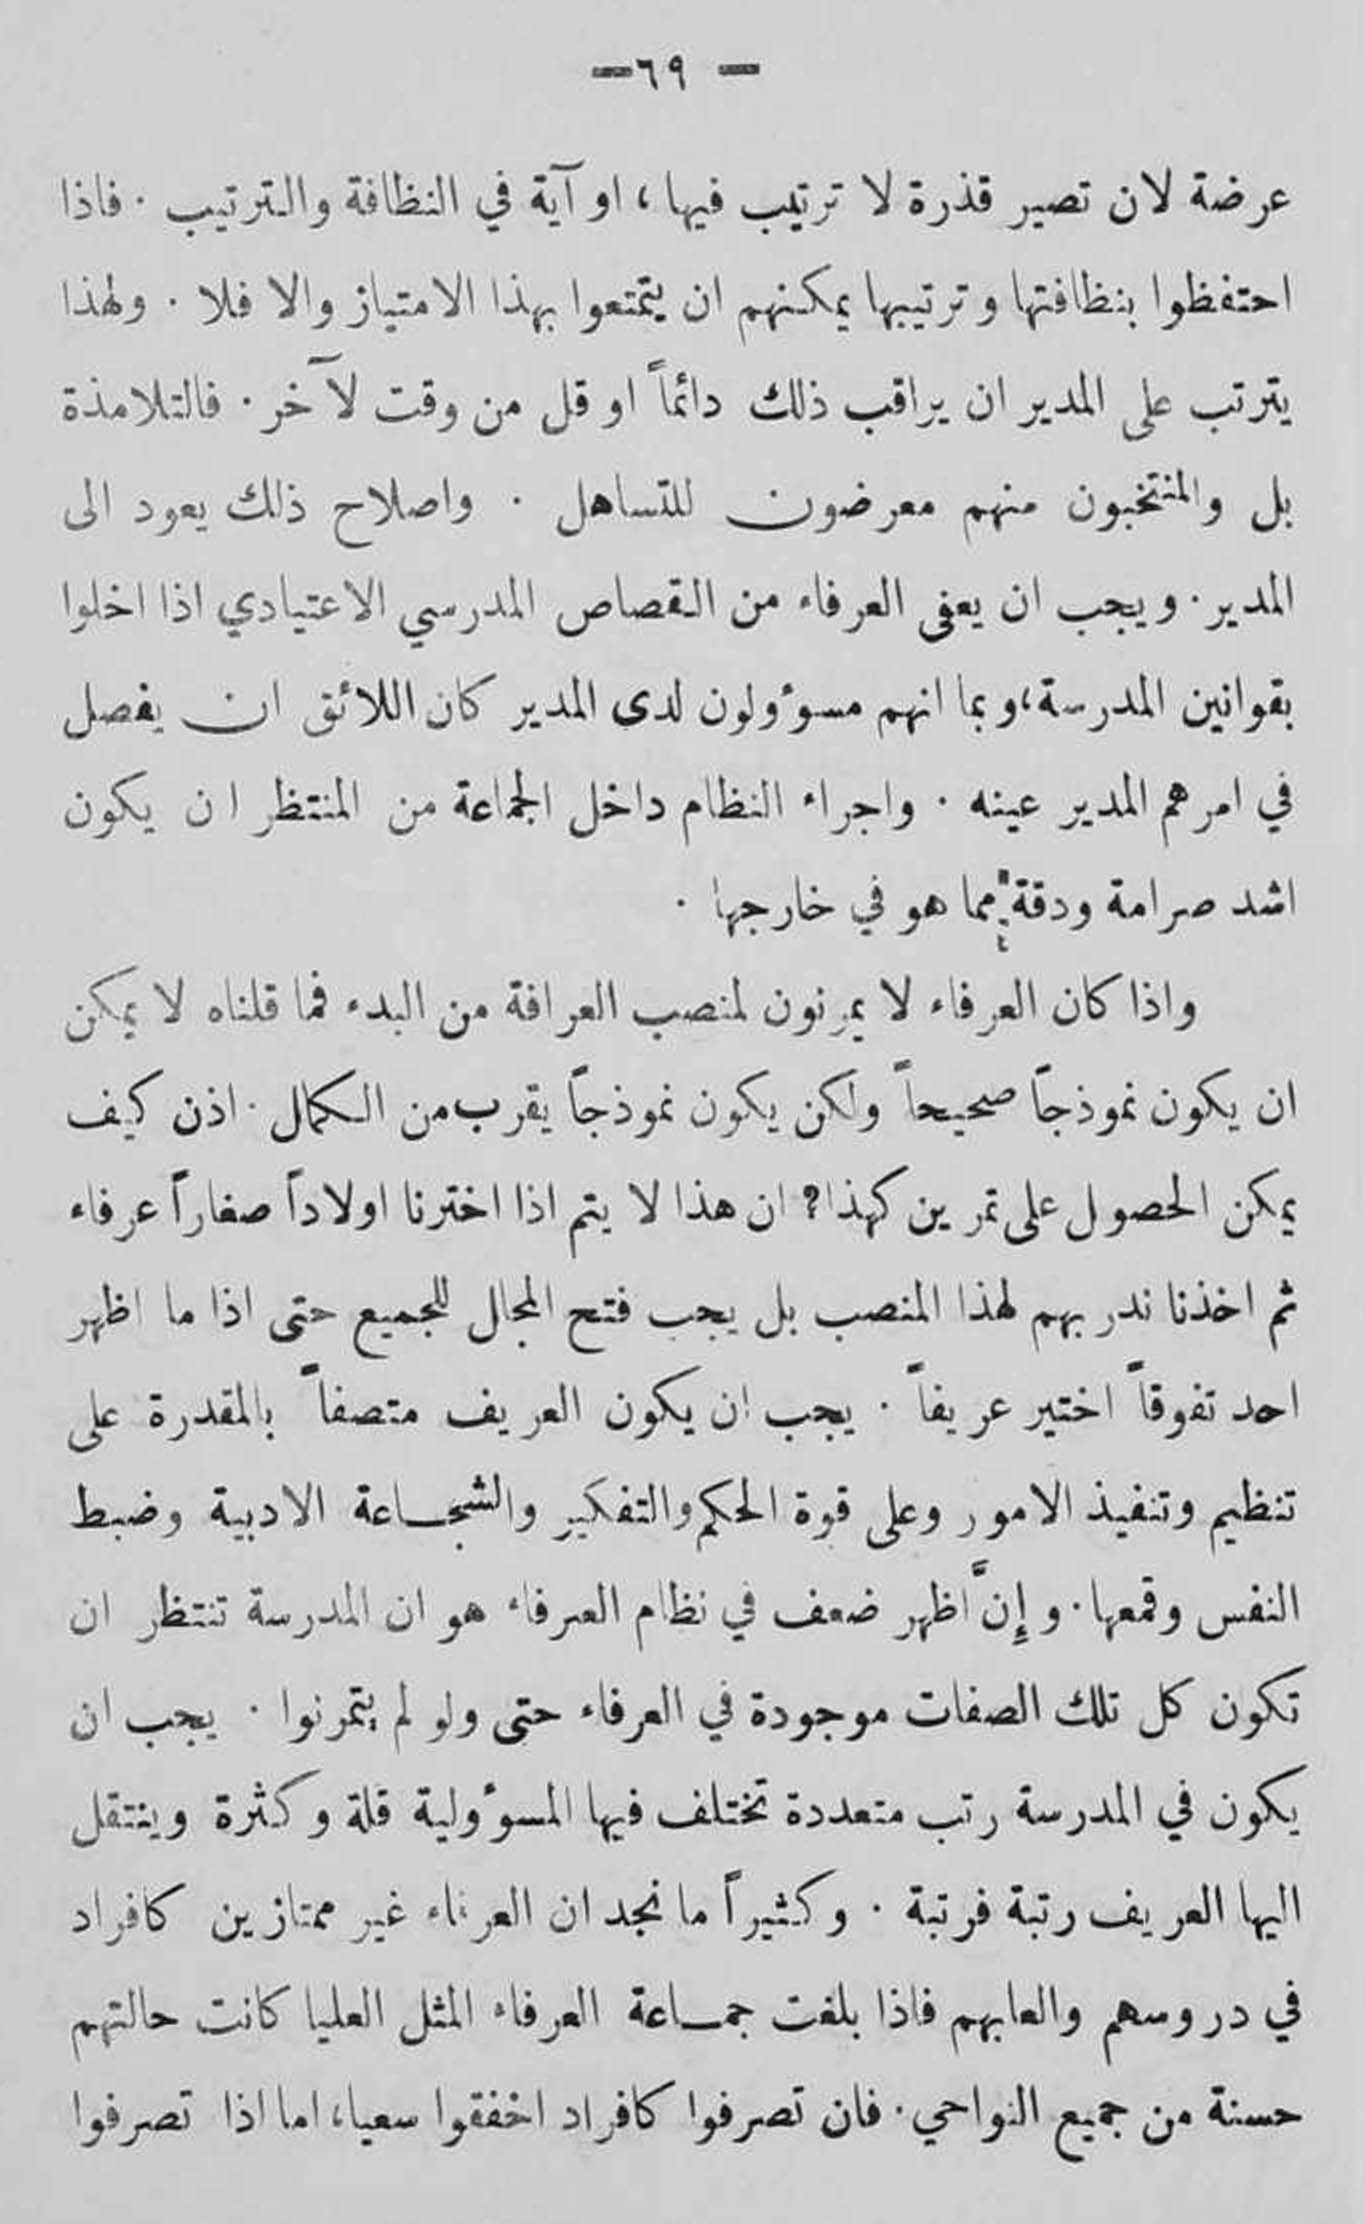 — ٦٩ —
عرضة لان تصير قذرة لا ترتيب فيها ، او آية في النظافة والترتيب . فاذا
احتفظوا بنظافتها وترتيبها يمكنهم ان يتمتعوا بهذا الامتياز والا فلا . ولهذا
يترتب على المدير ان يراقب ذلك دائماً او قل من وقت لآخر . فالتلامذة
بل والمنتخبون منهم معرضون للتساهل . واصلاح ذلك يعود الى
المدير . ويجب ان يعفى العرفاء من القصاص المدرسي الاعتيادي اذا اخلوا
بقوانين المدرسة ، وبما انهم مسؤولون لدى المدير كان اللائق ان يفصل
في امرهم المدير عينه . واجراء النظام داخل الجماعة من المنتظر ان يكون
اشد صرامة ودقة مما هو في خارجها .
واذا كان العرفاء لا يمرنون لمنصب العرافة من البدء فما قلناه لا يمكن
ان يكون نموذجاً صحيحاً ولكن يكون نموذجاً يقرب من الكمال . اذن كيف
يمكن الحصول على تمرين كهذا ؟ ان هذا لا يتم اذا اخترنا اولاداً صغاراً عرفاء
ثم اخذنا ندربهم لهذا المنصب بل يجب فتح المجال للجميع حتى اذا ما اظهر
احد تفوقاً اختير عريفاً . يجب ان يكون العريف متصفاً بالمقدرة على
تنظيم وتنفيذ الامور وعلى قوة الحكم والتفكير والشجاعة الادبية وضبط
النفس وقمعها . وإنَّ اظهر ضعف في نظام العرفاء هو ان المدرسة تنتظر ان
تكون كل تلك الصفات موجودة في العرفاء حتى ولو لم يتمرنوا . يجب ان
يكون في المدرسة رتب متعددة تختلف فيها المسؤولية قلة وكثرة وينتقل
اليها العريف رتبة فرتبة . وكثيراً ما نجد ان العرفاء غير ممتازين كافراد
في دروسهم والعابهم فاذا بلغت جماعة العرفاء المثل العليا كانت حالتهم
حسنة من جميع النواحي . فان تصرفوا كافراد اخفقوا سعيا ، اما اذا تصرفوا